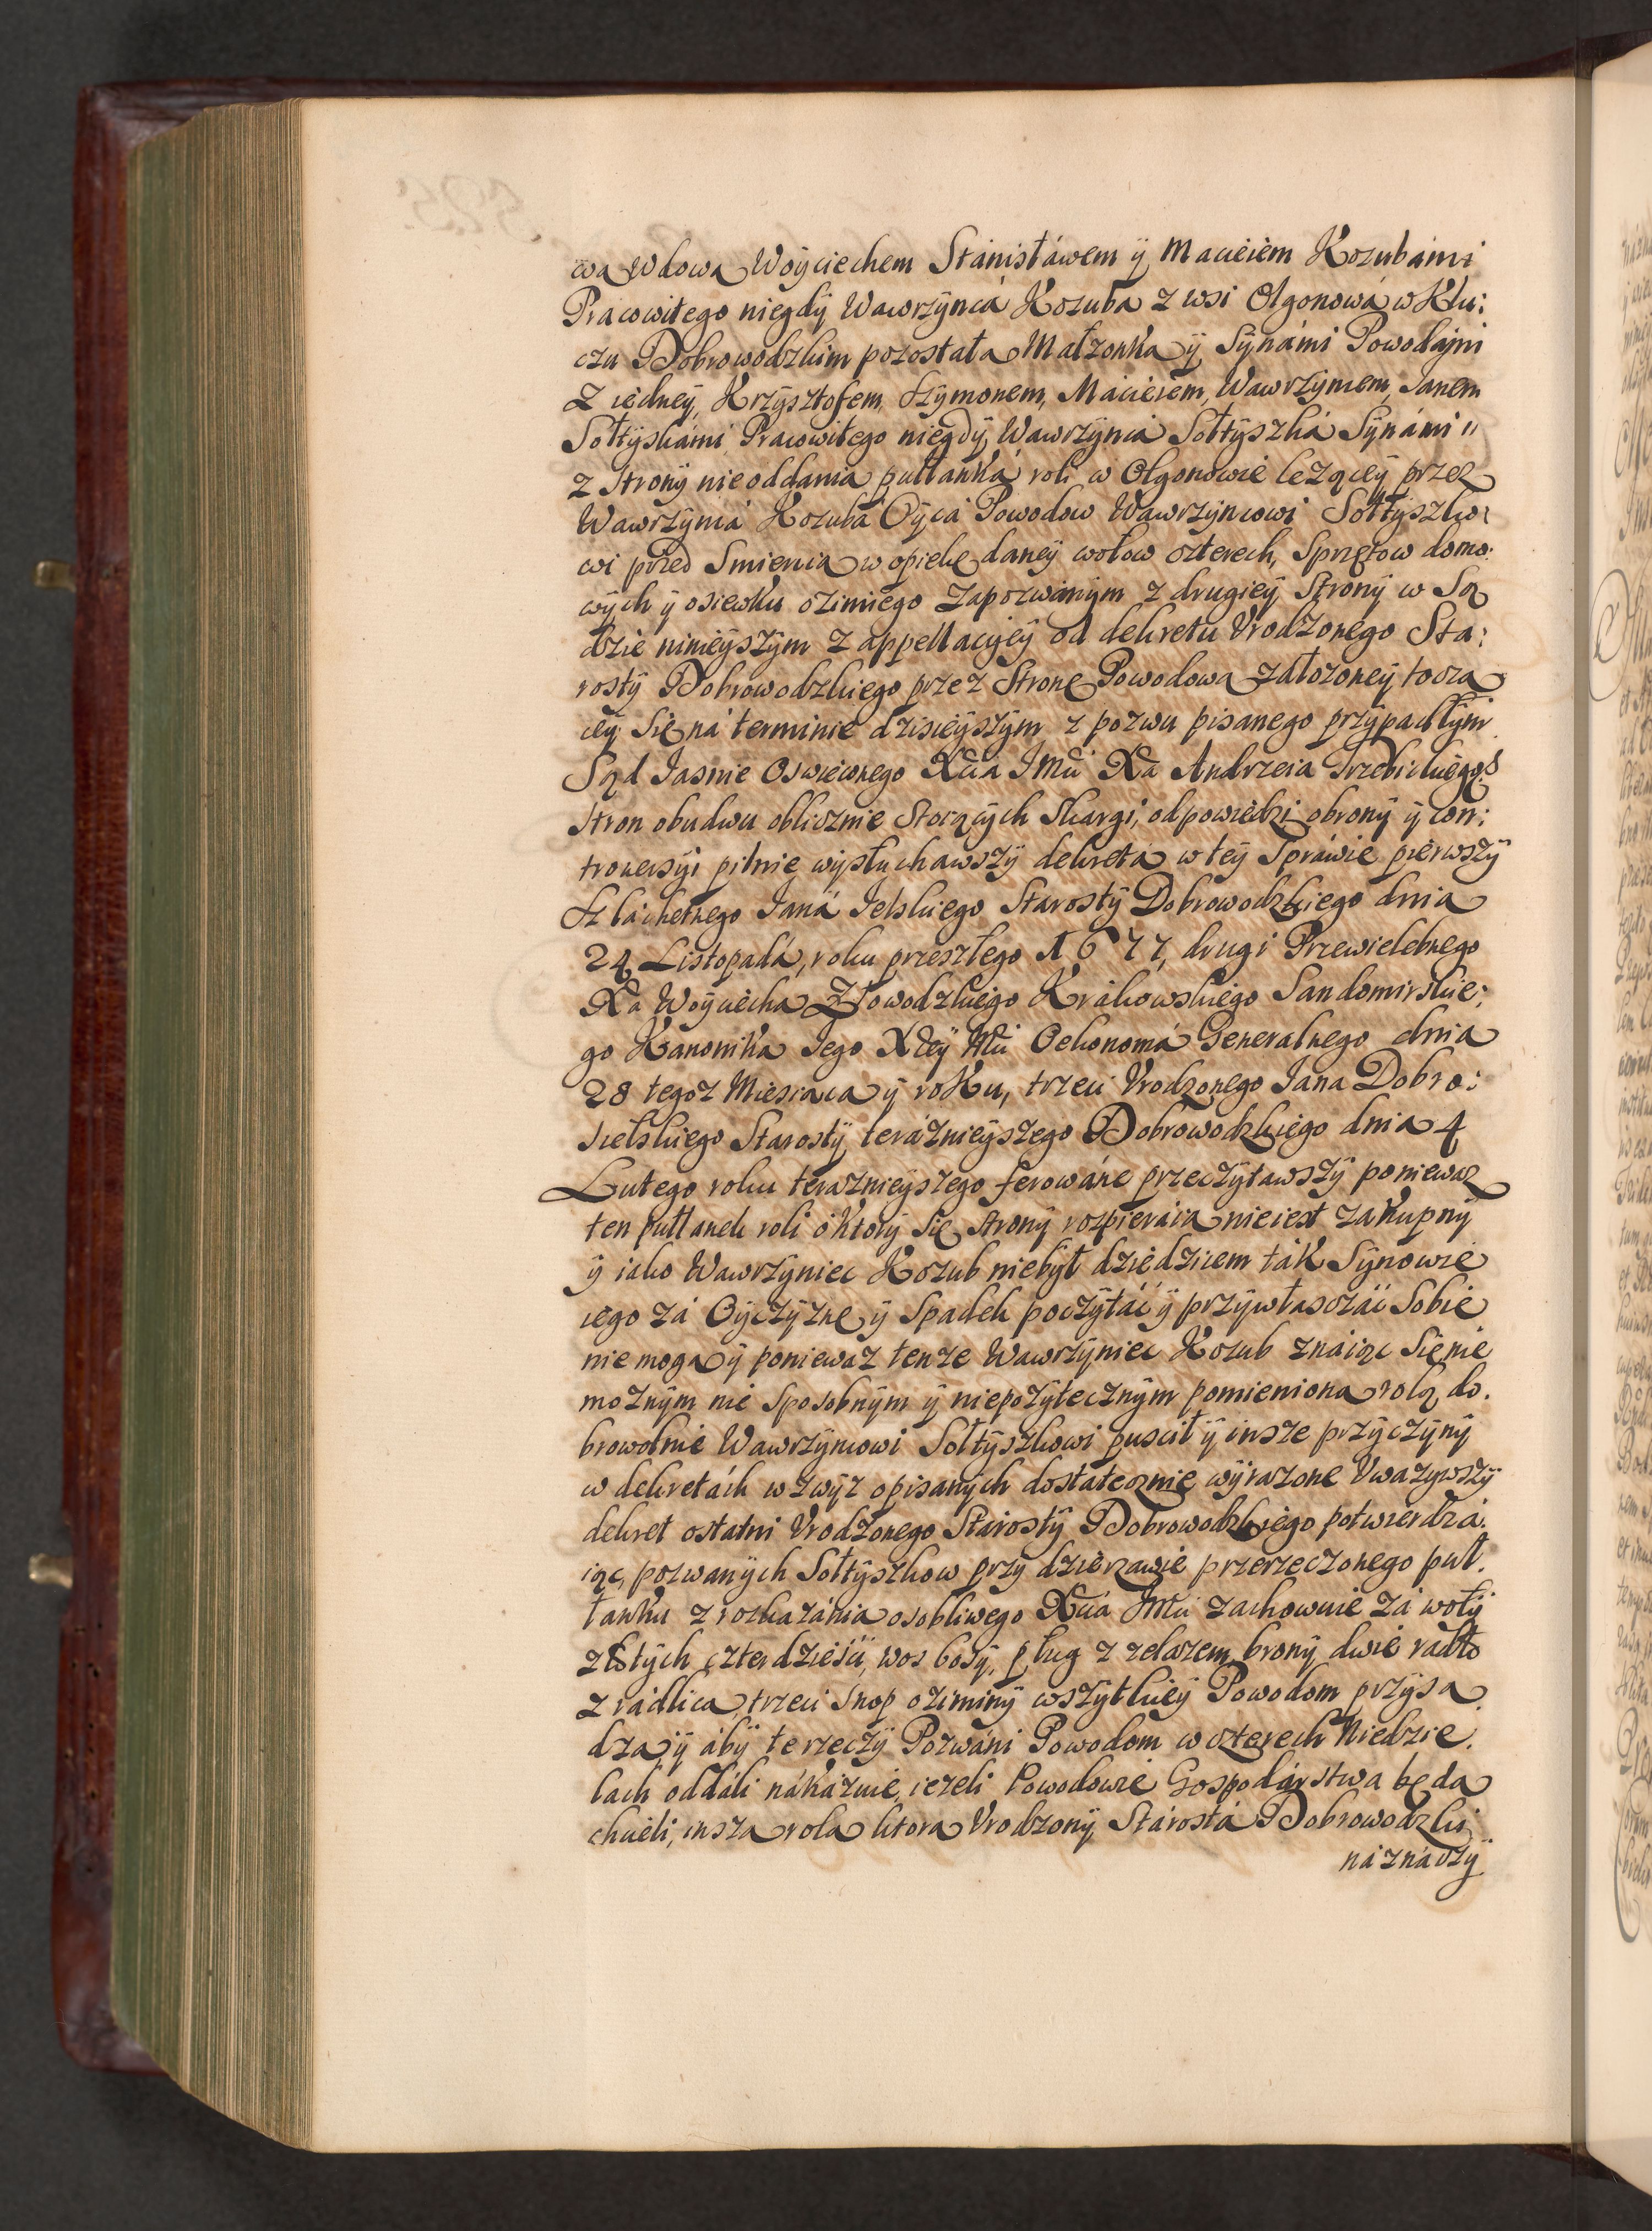 wa Wdowa Woyciechem Stánisłáwem ÿ Macieiem Kozubámi
Pracowitego niegdÿ Wawrzÿncá Kozuba z wsi Olgonowá w Klu:
czu Dobrowodzkim pozostała Małzonka ÿ Sÿnámi Powodámi
Z iedneÿ, Krzÿsztofem, Szÿmonem, Macieiem, Wawrzÿncem, Janem
Sołtÿskámi Pracowitego niegdÿ Wawrzÿnca Sołtÿszká Sÿnámi
z Stronÿ nieoddania pułłanká roli w Olgonowie lezącÿ przez
Wawrzÿnca Kozubá Oÿca Powodow Wawrzÿncowi Sołtÿszko:
wi przed Smiercia w opiekę daneÿ wołow czterech, Sprzętow domo:
wÿch ÿ osiewku ozimiego zapozwánÿm z drugieÿ Stronÿ w Są
dzie ninieÿszÿm z appellacÿeÿ od dekretu Vrodzonego Sta:
rostÿ Dobrowodzkiego przez Stronę Powodowa założoneÿ tocza
ceÿ Się ná terminie dzisieÿszÿm z pozwu pisanego przÿpadłÿm
Sąd Jasnie Oswieconego Xcia JMci Xa Andrzeia Trzebickiego
Stron obudwu oblicznie Stoiącÿch Skargi, odpowiedzi obronÿ ÿ con:
trowersÿi pilnie wÿsłuchawszÿ dekretá w teÿ Spráwie pierwszÿ
Szlachetnego Janá Jelskiego Starostÿ Dobrowodzkiego dnia
24 Listopadá, roku przeszłego 1677, drugi Przewielebnego
Xa Woÿciecha Złowodzkiego Krákowskiego Sandomirskie:
go Kanonika Jego Xcey Mci Oekonomá Generalnego dnia
28 tegoz Miesiaca ÿ roku, trzeci Vrodzonego Jana Dobro:
sielskiego Starostÿ teráznieÿszego Dobrowodzkiego dnia 4
Lutego roku teraznieÿszego ferowáne przeczÿtawszÿ poniewaz
ten pułłanek roli o ktorÿ Się Stronÿ rozpieráia nie iest zakupnÿ
ÿ iako Wawrzÿniec Kozub niebÿł dziedzicem ták Sÿnowie
iego zá Oÿczÿznę ÿ Spadek poczÿtáć ÿ przÿwłasczáć Sobie
nie moga ÿ poniewaz tenze Wawrzÿniec Kozub znáiąc Się nie
moznÿm nie Sposobnÿm ÿ niepozÿtecznÿm pomieniona rolą do.
browolnie Wawrzÿncowi Sołtÿszkowi puscił ÿ insze przÿczÿnÿ
w dekretách wzwÿz opisanÿch dostatecznie wÿrazone Vwazÿwszÿ
dekret ostatni Vrodzonego Stárostÿ Dobrowodzkiego potwierdzá:
iąc, pozwanÿch Sołtÿszkow przÿ dzierzawie przerzeczonego puł.
łanku z roskazánia osobliwego Xcia JMci zachowuie zá wołÿ
złotÿch czterdzieści, wos bosÿ, pług z zelazem, bronÿ dwie radło
z rádlica, trzeci Snop oziminÿ wszÿtkieÿ Powodom przÿsa
dza ÿ ábÿ te rzeczÿ Pozwáni Powodom w czterech Niedzie.
lach oddáli nákázuie, iezeli Powodowie Gospodárstwa będa
chcieli, insza rola ktora Vrodzonÿ Stárostá Dobrowodzki
náznáczÿ